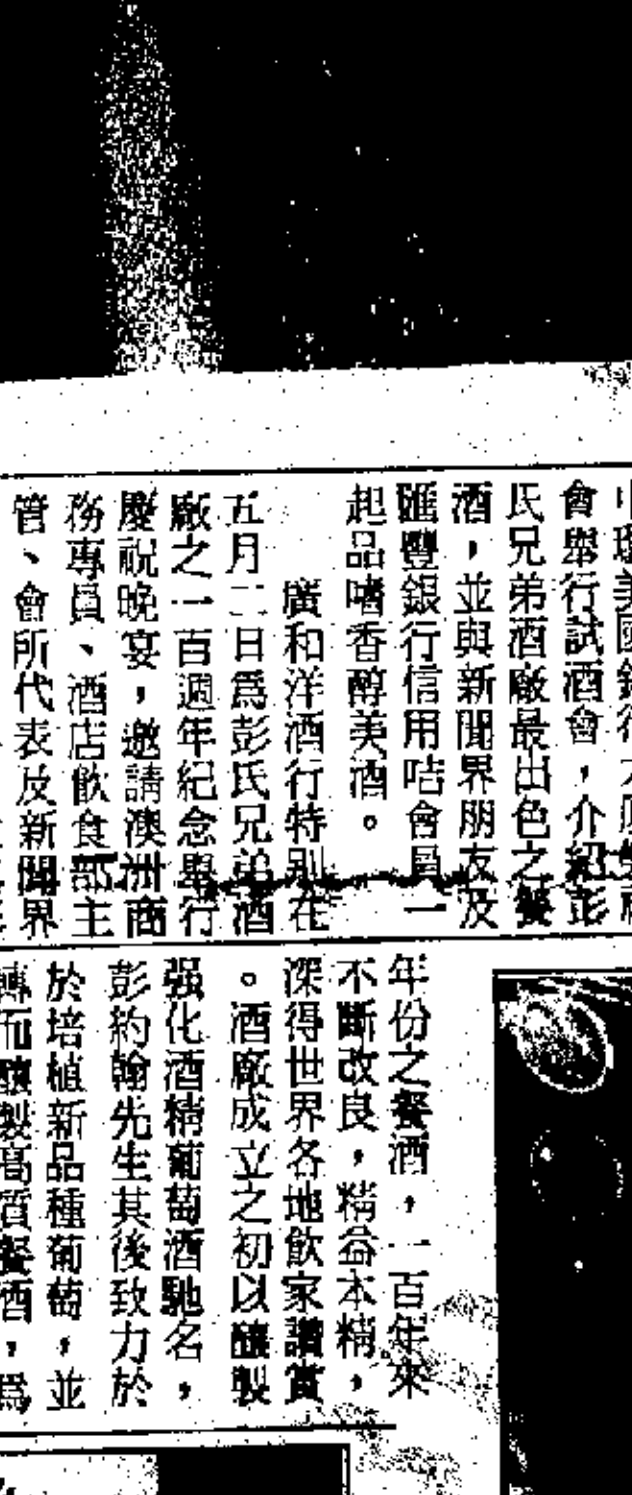 環美國銀行大廈
會舉行試酒會，介紹彭
氏兄弟酒廠最出色之餐
酒，並與新聞界朋友及
匯豐銀行信用咭會員一
起品嚐香醇美酒。
廣和洋酒行特別在
五月二日爲彭氏兄弟酒
廠之一百週年紀念舉行
慶祝晚宴，邀請澳洲商
務專員、酒店飲食部主
管、會所代表及新聞界
年份之餐酒，一百年來
不斷改良，精益求精，
深得世界各地飲家讚賞
。酒廠成立之初以釀製
强化酒精葡萄酒馳名，
彭約翰先生其後致力於
於培植新品種葡萄，並
轉而釀製高質餐酒，爲